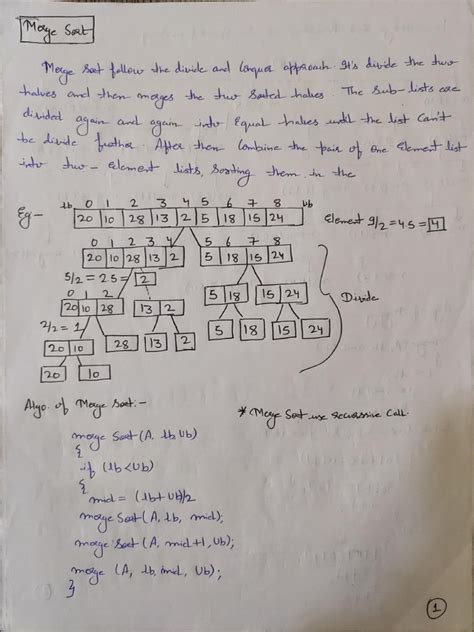 Merge Sort
Merge sort follow the divide and conquer approach. It's divide the two
halves and then merges the two sorted halves. The sub-lists are
divided again and again into Equal halves until the list can't
be divide further. After then combine the pair of one Element list
into two- Element lists, sorting them in the
lb 0 1 2 3 4 5 6 7 8 ub
Eg- 20 10 28 13 2 5 18 15 24 Element 9/2 = 4.5 = 4
0 1 2 3 4 5 6 7 8
20 10 28 13 2 5 18 15 24
5/2 = 2.5 = 2
0 1 2
20 10 28 13 2 5 18 15 24 Divide
2/2 = 1
20 10 28 13 2 5 18 15 24
20 10
Algo. of Merge Sort:- * Merge Sort use recurssive Call.
merge Sort (A, lb, Ub)
{
if (lb < Ub)
{
mid = (lb + Ub)/2
merge Sort (A, lb, mid);
merge sort (A, mid+1, Ub);
merge (A, lb, mid, Ub);
}
1